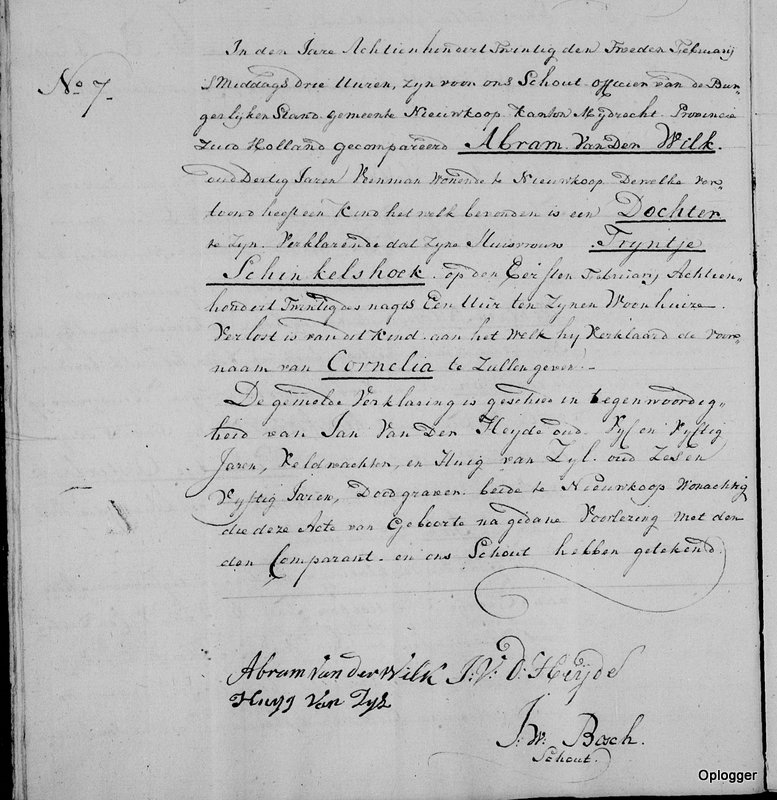 In den Jare Achtienhondert Twintig den Tweeden Februarij
No 7.
S'Middags drie Uuren, zyn voor ons Schout officier van de Bur-
gerlyken Stand gemeente Nieuwkoop Kanton Mydrecht Provincie
Zuid Holland gecompareerd Abram Van Der Wilk.
oud Dertig Jaren Veenman Wonende te Nieuwkoop Dewelke ver-
toond heeft een Kind het welk bevonden is een Dochter
te Zyn. Verklarende dat Zyne Huisvrouw Tryntje
Schinkelshoek op den Eersten February Achtien-
hondert Twintig des nagts Een Uur ten Zynen Woonhuize
Verlost is van dit Kind aan het Welk hy Verklaard de Voor-
naam van Cornelia te Zullen geven.-
De gemelde Verklaring is geschied in tegenwoordig-
heid van Jan Van Der Heyde oud Vyf en Vyftig
Jaren, Veldwachter, en Huig van Zyl. oud Zes en
Vyftig Jaren, Doodgraver beide te Nieuwkoop Wonachtig
die deze Acte van Geboorte na gedane Voorlezing met den
den Comparant en ons Schout hebben getekend.
Abram Van der Wilk J: V: D: Heyde
Huyg Van Zyl
J: W: Bosch.
Schout.
Oplogger